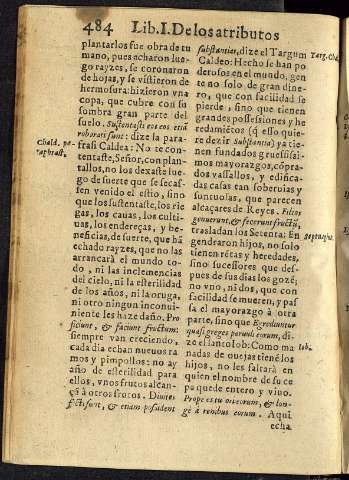 484 Lib. I. De los atributos
plantarlos fue obra de tu
mano, pues echaron lue-
go rayzes, se coronaron
de hojas, y se vistieron de
hermosura: hizieron vna
copa, que cubre con su
sombra gran parte del
suelo. Sustentasti eos etiã
roborasti sunt: dize la para-
frasi Caldea: No te con-
Chald. pa-
raphrast.
tentaste, Señor, con plan-
tallos, no los dexaste lue-
go de suerte que se secas-
sen venido el estio, sino
que los sustentaste, los rie-
gas, los cauas, los culti-
uas, los endereças, y be-
neficias, de suerte, que hã
echado rayzes, que no las
arrancarà el mundo to-
do, ni las inclemencias
del cielo, ni la esterilidad
de los años, ni la oruga,
ni otro ningun inconui-
niente les haze daño. Pro-
ficiunt, & faciunt fructum:
siempre van creciendo,
cada dia echan nueuos ra-
mos y pimpollos: no ay
año de esterilidad para
ellos, y vnos frutos alcan-
çã à otros frotos. Diuites
fecti sunt, & etiam possident
substantias, dize el Targum
Targ. Cha.
Caldeo: Hecho se han po
derosos en el mundo, gen
te no solo de gran dine-
ro, que con facilidad se
pierde, sino que tienen
grandes possessiones, y he
redamiẽtos (q̃ esso quie-
re dezir Substantia) ya tie-
nen fundados gruessissi-
mos mayorazgos, cõpra-
dos vassallos, y edifica-
das casas tan soberuias y
suntuosas, que parecen
alcaçares de Reyes. Filios
genuerunt, & fecerunt fructũ,
trasladan los Setenta: En
Septuagint.
gendraron hijos, no solo
tienen rẽtas y heredades,
sino sucessores que des-
pues de sus dias los gozẽ;
no vno, ni dos, que con
facilidad se mueren, y pas
sa el mayorazgo à otra
parte, sino que Egrediuntur
quasi greges paruuli eorum, di-
ze el santo Iob: Como ma
Iob.
nadas de ouejas tienẽ los
hijos, no les faltarà en
quien el nombre de su ce
pa quede entero y viuo.
Prope es tu ori eorum, & lon-
gè à renibus eorum. Aqui
echa